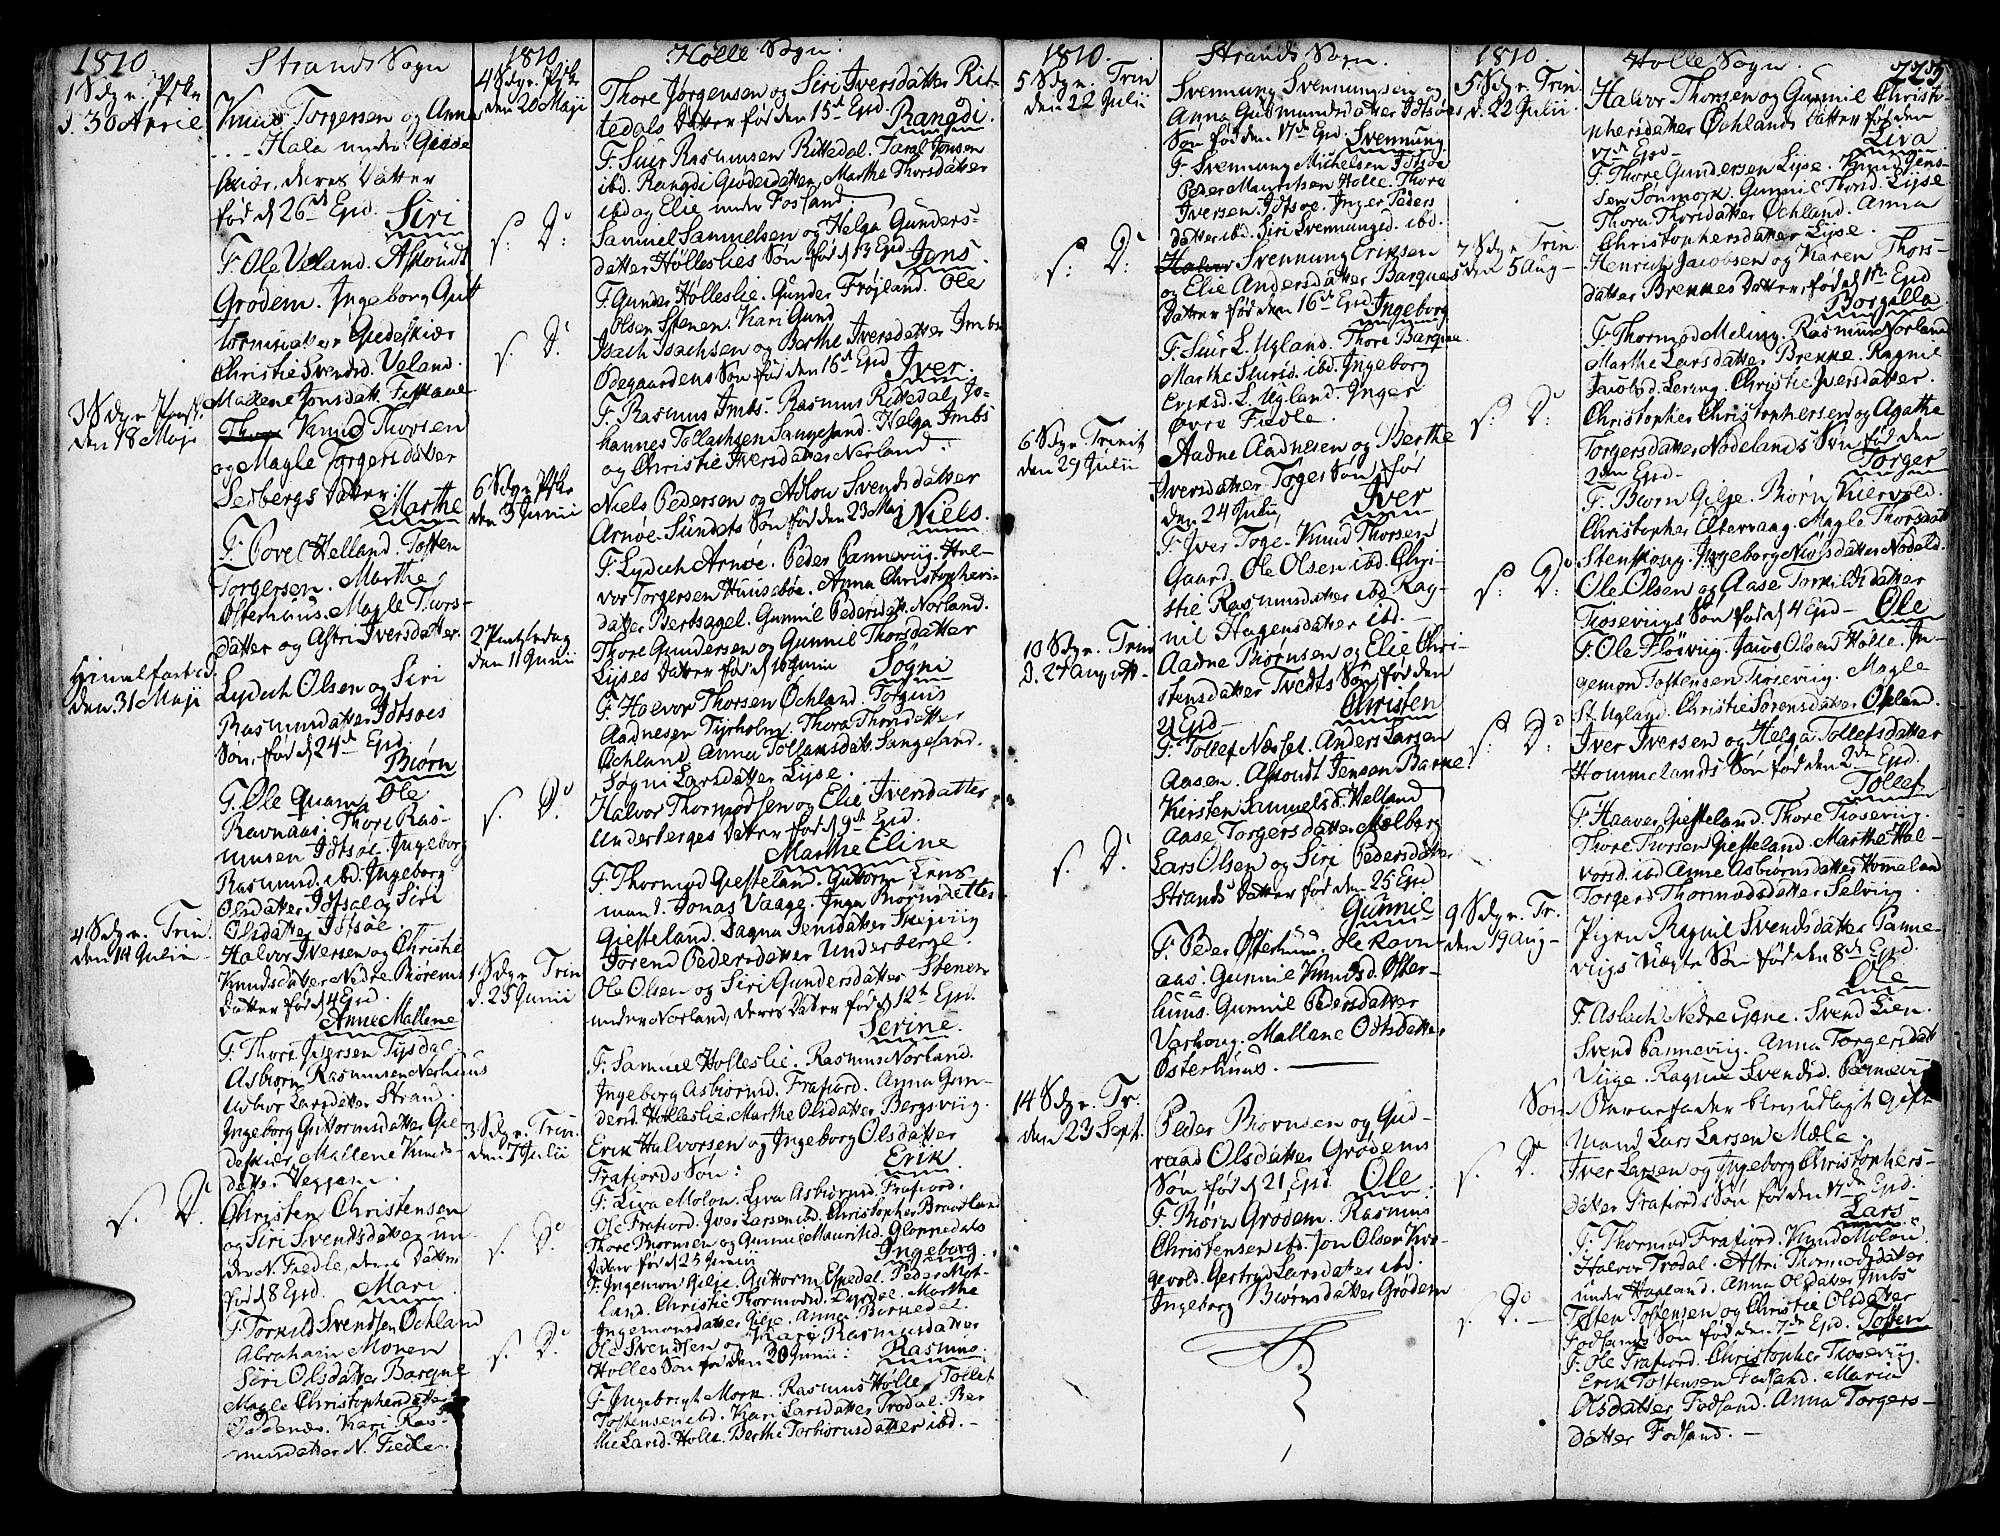 1810
Strands Sogn
1 Sdgr. Pske
d. 30 April
Knud Torgersen og Anna
Hala under Giede
skiær, deres Datter
fød d 26d Ejd. Siri
F. Ole Veland. Asmund
Grødem. Ingeborg Gut
tormsdatter Giedeskiær
Christie Svendsd. Veland.
Mallene Jonsdatt.
3 Sdgr. Paask.
den 18 Maji
Knud Thorsen
og Magle Torgersdatter
Sedbergs Datter:
Marthe
F. Povel Helland. Tosten
Torgersen. Marthe
Østerhuus. Magle Tors-
datter og Astri Iversdatter.
Himelfartsd.
den 31 Maji
Lydich Olsen og Siri
Rasmusdatter Idtsøes
Søn, fød d 24d Ejd.
Biørn
F. Ole Quam. Ole
Ravnaas. Thore Ras-
musen Idtsøe. Ingeborg
Rasmusd. ibd. Ingeborg
Olsdatter Idtsøe og Siri
Olsdatter Idtsøe.
4 Sdgr. Trin.
den 14 Julii
Halvor Iversen og Christie
Knudsdatter Nedre Thorem
Datter fød d 4 Ejd.
Anne Mallene
F. Thore Ivarsen Tysdal
Asbiørn Rasmusen Nerhuus
Larsdatter Strand.
Ingeborg Guttormsdatter Gie
deskiær, Mallene Knuds-
datter
s. D.
Christen Christensen
og Siri Svendsdatter un-
der N. Fiedle, deres Datter
fød 8 Ejd. Mari
F. Torkild Svendsen Ochland
Abraham Monen
Siri Olsdatter Barque
Magle Christophersdatter
Kari Ras-
musdatter N. Fiedle.
1810.
Holle Sogn:
4 Sdgr. Pske
den 20 Maji
Thore Jørgensen og Siri Iversdatter Rit-
tedals Datter fød den 15d Ejd. Rangdi.
F. Siur Rasmusen Rittedal. Tarel Jonsen
ibd. Rangdi Giødesdatter, Marthe Thorsdatter
ibd og Elie under Fosland.
s. D:
Samuel Samuelsen og Helga Gunders-
datter Hølleslies Søn fød d 13 Ejd Jens.
F. Gunder Hølleslie. Gunder Frøjland. Ole
Olsen Stenen. Kari Gund
s. D:
Isach Isachsen og Berthe Iversdatter Imbs
Ødegaardens Søn fød den 15d Ejd Iver.
F. Rasmus Imbs. Rasmus Rittedal, Jo-
hannes Tollachsen Sangesand. Helga Imbs
og Christie Iversdatter Norland:
6 Sdgr. Pske
den 3 Junii
Niels Pedersen og Adlou Svendsdatter
Arnøe-Sundets Søn fød den 23 Maj Niels.
F. Lydich Arnøe. Peder Pannevig. Hal-
vor Torgersen Huusebøe. Anna Christophers-
datter Bertsagel. Gunnil Pedersdatt. Norland.
2 Pintsedag
den 11 Junii
Thore Gundersen og Gunnil Thorsdatter
Lyses Datter fød den 10 Junii Sögni
F. Halvor Thorsen Ochland. Torguis
Aadnesen Tyrholm. Thora Thorsdatter
Ochland Anna Tollaksdatt. Sangesand.
Søgni Larsdatter Lyse.
s. D:
Halvor Thormodsen og Elie Iversdatter
Underberges Datter fød d 9d Ejd.
Marthe Eline
F. Thormod Giesteland. Guttorm Lens
mand. Jonas Vaage. Inga Biørnsdatter
Giesteland. Dagna Jensdatter Skejviig
Torend Pedersdatter Underberge.
1 Sdgr. Trin
d. 25 Junii
Ole Olsen og Siri Gundersdatter Stenen
under Norland, deres Datter fød d 12th Ejd.
Serine.
F. Samuel Holleslie. Rasmus Norland.
Ingeborg Asbiørnsd. Frafiord. Anna Gun-
dersd. Holleslie. Marthe Olsdatter Bergsviig.
3 Sdgr. Trin.
den 7 Julii
Erik Halvorsen og Ingeborg Olsdatter
Frafiords Søn:
Erik
F. Liva Molou. Liva Asbiørnsd. Frafiord.
Ole Frafiord. Iver Larsen ibd. Christopher Bradland
s. D:
Thore Biørnsen og Gunnil Mauritsd. Gloppedals
Datter fød d 25 Junii
Ingeborg.
F. Ingemon Gilje. Guttorm Espedal. Peder Mæt-
land. Christie Thormodsd. Dyrdal. Marthe
Ingemonsdatter Gilje. Anna Birkedal.
s. D:
Ole Svendsen og Kari Rasmusdatter
Holles Søn fød den 20 Junii: Rasmus.
F. Ingebrigt Mork. Rasmus Hølle. Tollef
Tostensen ibd. Kari Larsdatter Trodal. Ber
the Larsd. Holle. Berthe Torbiørnsdatter ibd.
1810.
Strands Sogn.
5 Sdgr. Trin
den 22 Julii
Svennung Svennungsen og
Anna Gudmundsdatter Idtsøes
Søn fød den 17d Ejd Svennung.
F. Svennung Michelsen Idtsøe
Peder Mauritsen Holle. Thore
Iversen. Idtsøe. Inger Peders
datter ibd. Siri Svennungsd. ibd.
s. D:
Halvor Svennung Eriksen
og Elie Andersdatter Barques
Datter fød den 16d Ejd Ingeborg
F. Siur L. Ugland. Thore Barque.
Marthe Siursd. ibd. Ingeborg
Eriksd. L. Ugland. Inger
Øvre Fiedle.
6 Sdgr. Trinit
den 29 Julii
Aadne Aadnesen og Berthe
Iversdatter Toges Søn, fød
den 24 Julij Iver
F. Iver Toge. Knud Thorsen
Gaard. Ole Olsen ibd. Chri-
stie Rasmusdatter ibd Rag-
nil Hagensdatter ibd.
10 Sdgr. Trin
d. 27 August
Aadne Biørnsen og Elie Chri-
stensdatter Tvedts Søn, fød den
21 Ejd
Christen
F. Tollef Næsset. Anders Larsen
Aasen. Asmundt Jensen Barke
Kirsten Samuelsd. Helland
Aase Torgersdatter Mælberg
s. D:
Lars Olsen og Siri Pedersdatter
Strands Datter fød den 25 Ejd
Gunnil
F. Peder Østerhuus. Ole Ravn-
aas. Gunnil Knudsd. Øster-
huus. Gunnil Pedersdatter
Mallane Odtsdatter
Østerhuus.
14 Sdgr. Tr.
den 23 Sept.
Peder Biørnsen og Gud-
raad Olsdatter Grødems
Søn fød d 21 Ejd Ole
F. Biørn Grødem. Rasmus
Christensen ibd. Jon Olsen Kva-
gevold. Gertryd Larsdatter ibd.
Ingeborg Biørnsdatter Grødem
1810.
Holle Sogn.
225
5 Sdgr. Trin.
d. 22 Julii
Halvor Thorsen og Gunnil Christo-
phersdatter Ochlands Datter fød den
17d Ejd
Liva
F. Thore Gundersen Lyse. Knud Jens-
sen Sønmork. Gunnil Thorsd. Lyse
Thora Thorsdatter Ochland. Anna
Christophersdatter Lyse.
7 Sdgr. Trin.
den 5 Aug
Henrich Jacobsen og Karen Thors-
datter Brekkes Datter, fød d 1th Ejd
Borgilla
F. Thormod Meling. Rasmus Norland
Marthe Larsdatter Brekke. Ragnil
Jacobsd. Lering. Christie Iversdatter.
s. D:
Christopher Christophersen og Agathe
Torgersdatter Nødelands Søn fød den
2den Ejd
Torger
F. Biørn Gilje. Biørn Kiervold.
Christopher Eltervaag. Magle Thorsdatt
Stenskoug. Ingeborg Nielsdatter Nødeld.
s. D:
Ole Olsen og Aase Torkildsdatter
Tiosevigs Søn fød d 4 Ejd Ole
F. Ole Fløsviig. Jacob Olsen Holle. In-
gemon Tostensen Tiosevig. Magle
St. Ugland. Christie Sørensdatter Ochland.
s. D:
Iver Iversen og Helga Tollefsdatter
Hommelands Søn fød den 2den Ejd.
Tollef
F. Haaver Giesteland. Thore Tiosevig.
Thore Thorsen Giesteland. Marthe Hal-
vorsd. ibd Anne Asbiørnsdatter Homeland
Torgerd Thormodsdatter Selviig.
9 Sdgr. Tr.
den 19 Aug
Pigen Ragnil Svendsdatter Panne-
viigs Uægte Søn fød den 8de Ejd
Ole
F. Aslach Nedre Espe. Svend Lien.
Svend Pannevig. Anna Torgersdatt
Viige. Ragnil Svendsd. Pannevig
Som Barnefader blev udlagt Gift
mand Lars Larsen Mæle.
s. D:
Iver Larsen og Ingeborg Christophers-
datter Frafiords Søn fød den 17de Ejd:
Lars
F. Thormod Frafiord. Knud Molou.
Halvor Trodal. Astri Thormodsdatter
under Hapland. Anna Olsdatter Imbs
s. D:
Tosten Tostensen og Christie Olsdatter
Fodlands Søn fød den 7de Ejd. Tosten
F. Ole Frafiord. Christopher Tiosevig
Erik Tostensen Fodland. Maria
Olsdatter Fodland. Anna Torgers-
datter Fodsand.